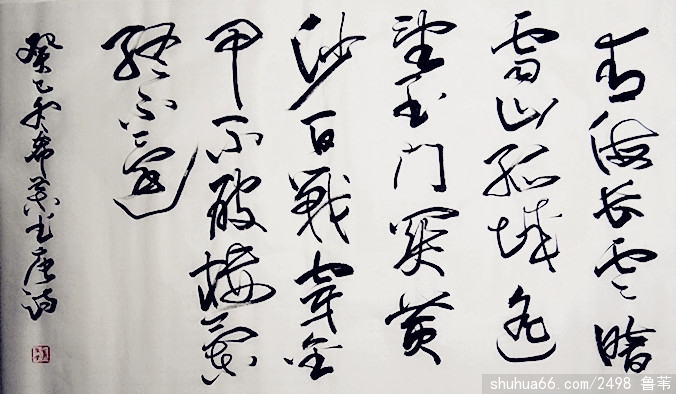 青海长云暗
雪山孤城遥
望玉门关黄
沙百战穿金
甲不破楼兰
终不还
癸巳冬希景书唐诗
shuhua66.com/2498 鲁苇